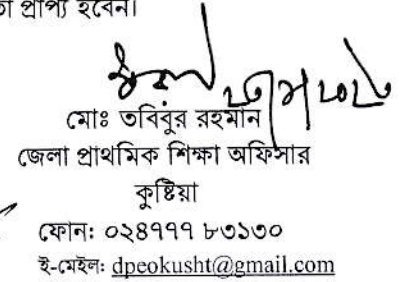 প্রাপ্য হবেন।
মোঃ তবিবুর রহমান
জেলা প্রাথমিক শিক্ষা অফিসার
কুষ্টিয়া
ফোন: ০২৪৭৭৭ ৮৩১৩০
ই-মেইল: dpeokusht@gmail.com